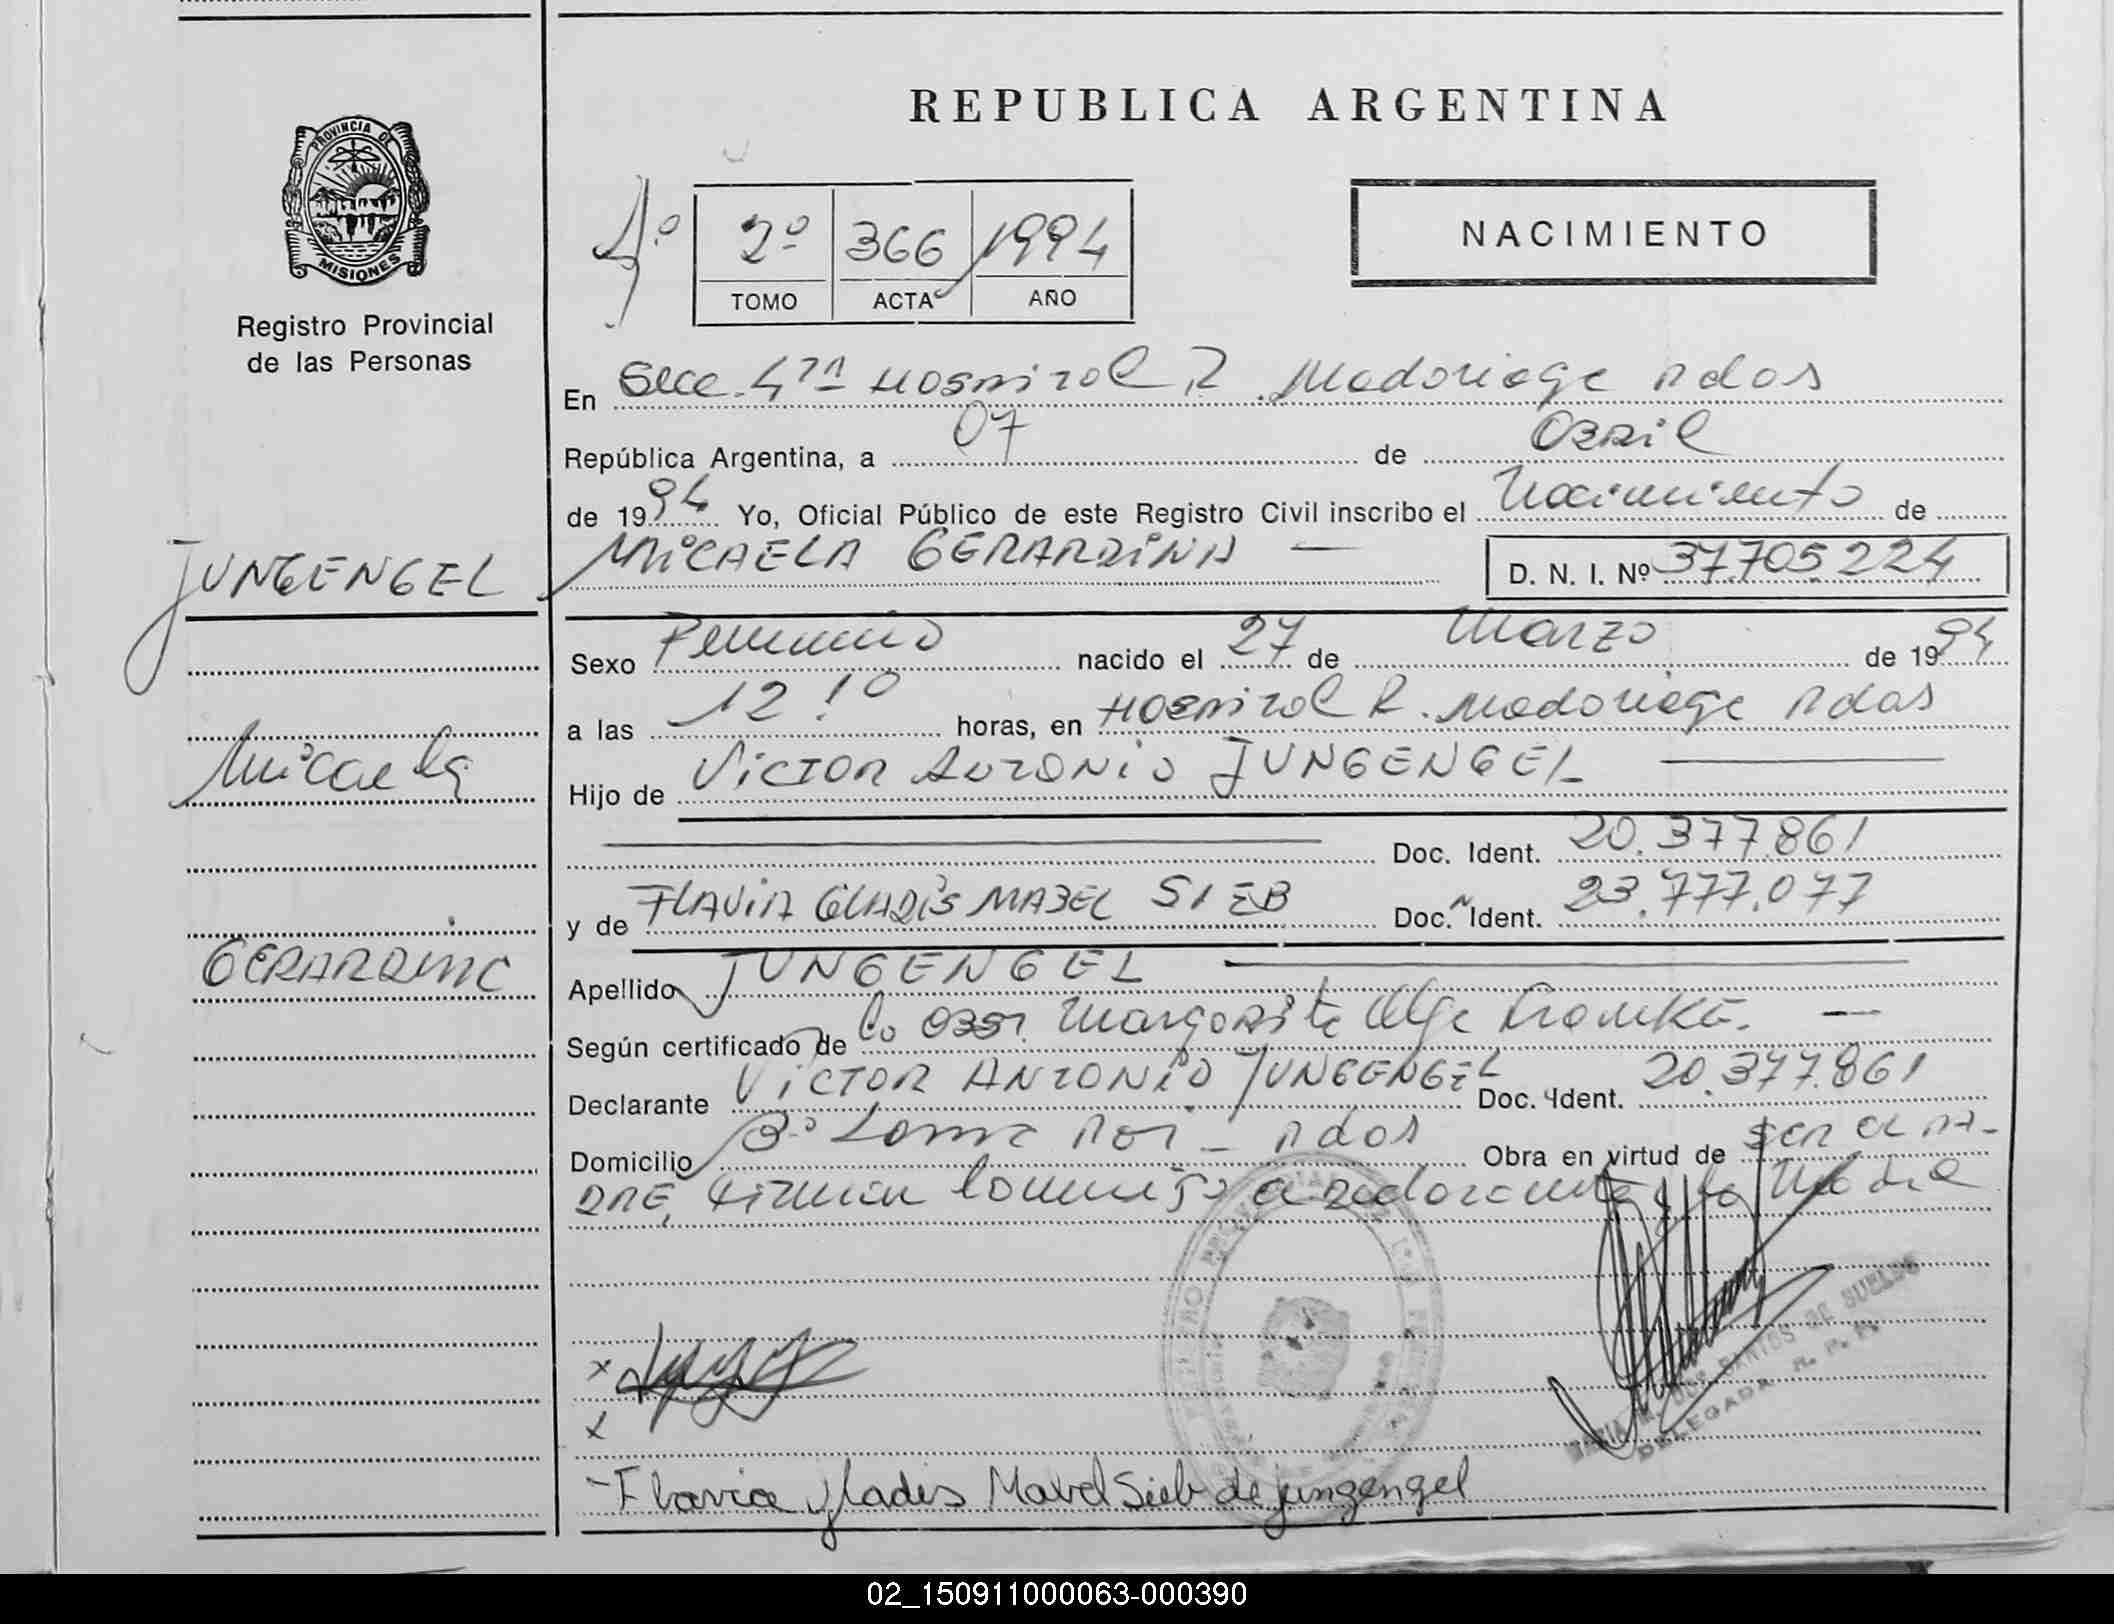 REPUBLICA ARGENTINA
PROVINCIA DE
MISIONES
Registro Provincial
de las Personas
4º 2º 366 1994
TOMO ACTA AÑO
NACIMIENTO
En Secc. 4ta Hospital R. Madariaga Pdas
República Argentina, a 07 de Abril
de 1994 Yo, Oficial Público de este Registro Civil inscribo el Nacimiento de
JUNGENGEL
MICAELA GERARDINA — D. N. I. Nº 37.705.224
Sexo Femenino nacido el 27 de Marzo de 1994
a las 12,10 horas, en Hospital R. Madariaga Pdas
Micaela
Hijo de Victor Antonio JUNGENGEL
Doc. Ident. 20.377.861
y de FLAVIA GLADIS MABEL SIEB Doc. Ident. 23.777.077
GERARDINA
Apellido JUNGENGEL
Según certificado de la Obst. Margarita Olga Kramke. —
Declarante VICTOR ANTONIO JUNGENGEL Doc. Ident. 20.377.861
Domicilio Pdas Obra en virtud de ser el PA-
DRE, Firman conmigo el declarante y la Madre
MARIA SANTOS DE SUELDO
DELEGADA R. P. P.
Flavia Gladis Mabel Sieb de jungengel
02_150911000063-000390